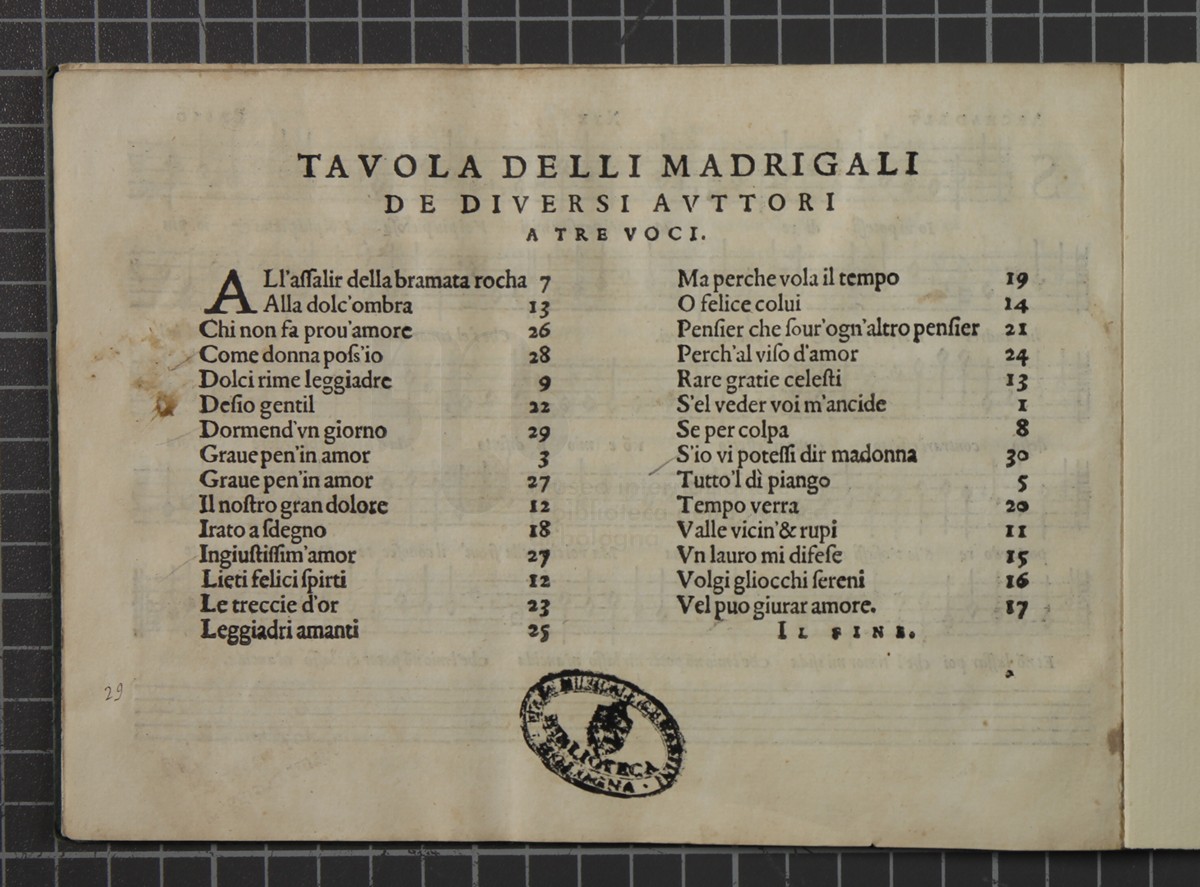 TAVOLA DELLI MADRIGALI
DE DIVERSI AVTTORI
A TRE VOCI.
ALl'aſſalir della bramata rocha 7
Alla dolc'ombra 13
Chi non fa prou'amore 26
Come donna poſs'io 28
Dolci rime leggiadre 9
Deſio gentil 22
Dormend'vn giorno 29
Graue pen'in amor 3
Graue pen'in amor 27
Il noſtro gran dolore 12
Irato a ſdegno 18
Ingiuſtiſſim'amor 27
Lieti felici ſpirti 12
Le treccie d'or 23
Leggiadri amanti 25
Ma perche vola il tempo 19
O felice colui 14
Penſier che ſour'ogn'altro penſier 21
Perch'al viſo d'amor 24
Rare gratie celeſti 13
S'el veder voi m'ancide 1
Se per colpa 8
S'io vi poteſſi dir madonna 30
Tutto'l dì piango 5
Tempo verra 20
Valle vicin'& rupi 11
Vn lauro mi difeſe 15
Volgi gliocchi ſereni 16
Vel puo giurar amore. 17
IL FINE.
29
BIBLIOTECA
BOLOGNA